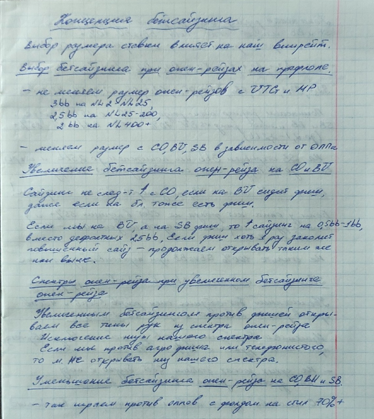 Концепция бетсайзинга
Выбор размера ставки влияет на наш винрейт.
Выбор бетсайзинга при опен-рейзах на префлопе.
- не меняем размер опен-рейзов с UTG и MP
3bb на NL2-NL25,
2,5bb на NL25-200,
2bb на NL400+
- меняем размер с CO, BU, SB в зависимости от оппа
Увеличение бетсайзинга опен-рейза на CO и BU.
Сайзинг не след-т ↑ с CO, если на BU сидит фиш,
даже если на бл. тоже есть фиш.
Если мы на BU, а на SB фиш, то ↑ сайзинг на 0,5bb-1bb,
вместо дефолтных 2,5bb. Если фиш хоть 1 раз заколит
повышенный сайз - продолжаем открывать таким же
или выше.
Спектры опен-рейза при увеличенном бетсайзинге
опен-рейза
Увеличенным бетсайзингом против фишей откры-
ваем все типы рук из спектра опен-рейза
Исключение низ нашего спектра
Если мы против агро фиша или телефонистого,
то м. НЕ открывать низ нашего спектра.
Уменьшение бетсайзинга опен-рейза на CO, BU и SB.
- так играем против с фолдом на стил 70%+